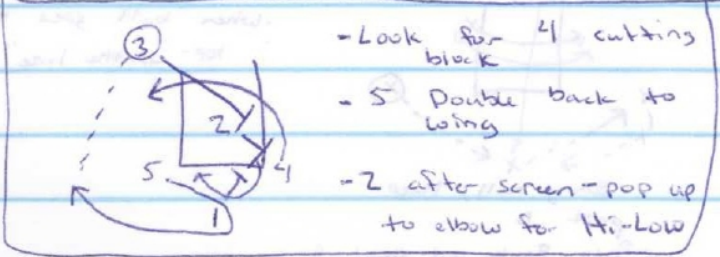 3
- Look for 4 cutting
block
2
- 5 Double back to
wing
5
4
- 2 after screen - pop up
1
to elbow for Hi-Low